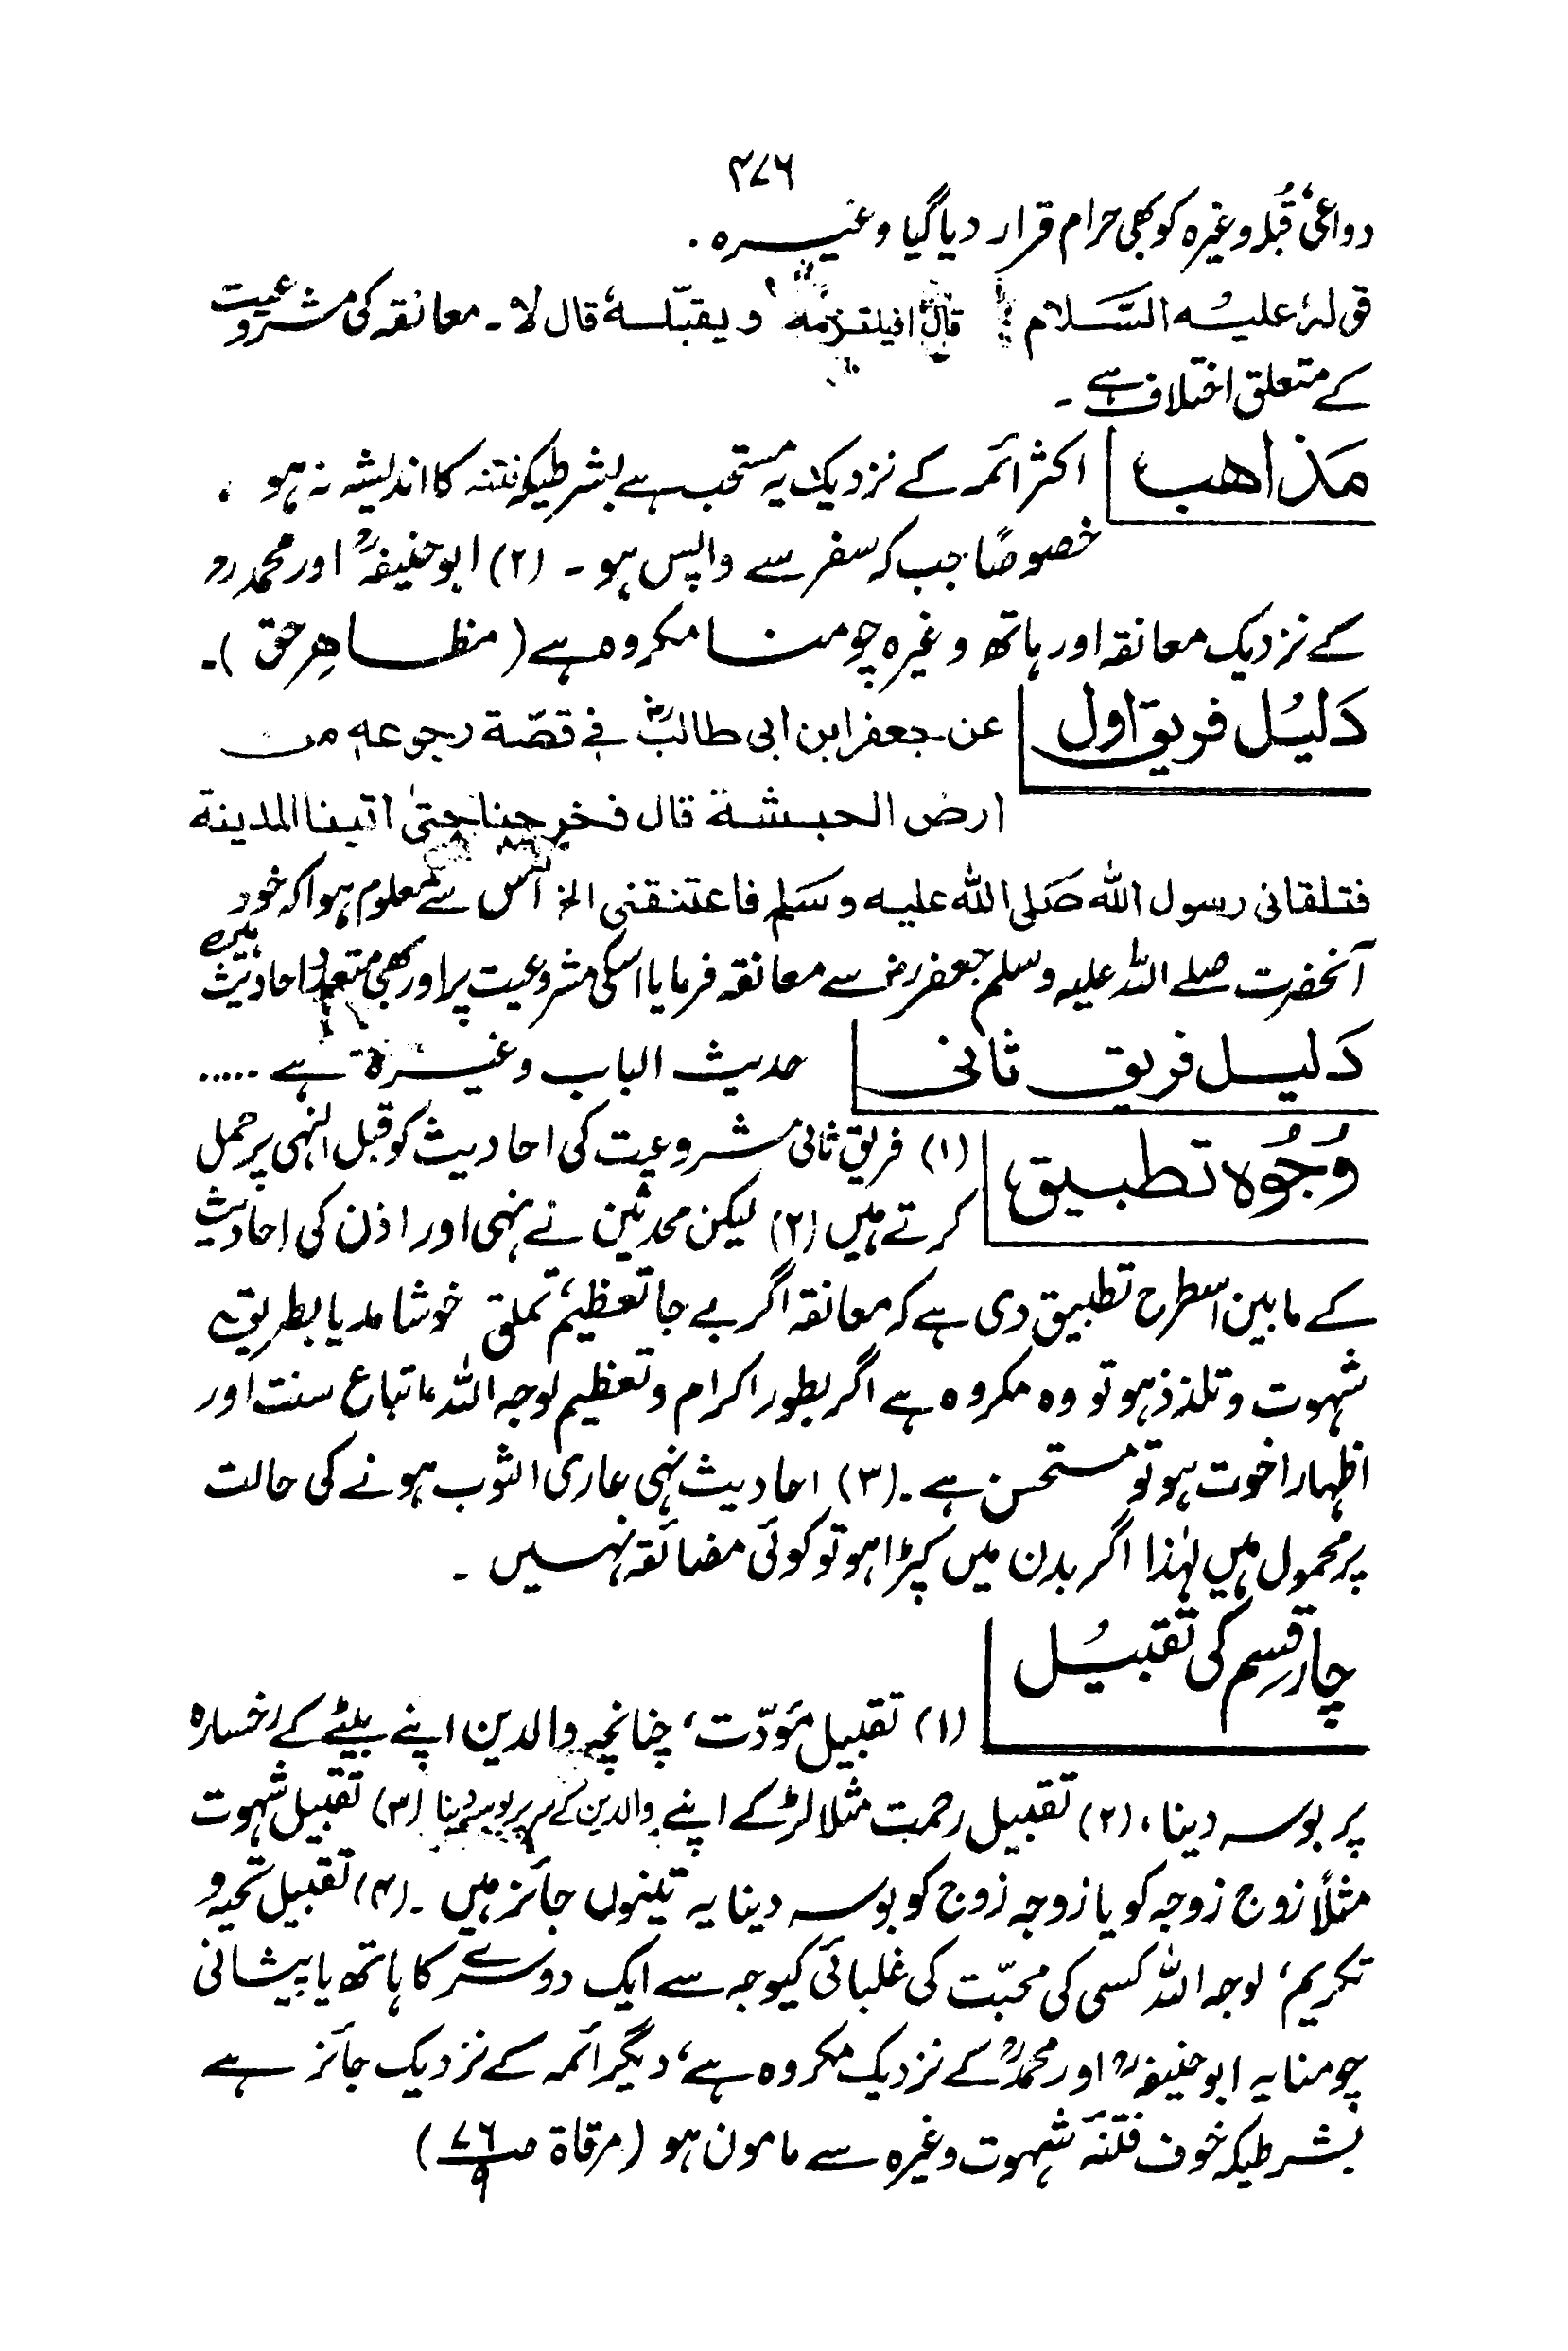 ۴۷۶
دواعی، قُبلہ وغیرہ کو بھی حرام قرار دیا گیا وغیرہ ۔
قولہٗ علیہ السَّلام : قال افیلتزمہٗ ویقبّلہٗ قال لا۔ معانقہ کی مشروعیت
کے متعلق اختلاف ہے ۔
مَذاهب اکثر ائمہ کے نزدیک یہ مستحب ہے بشرطیکہ فتنہ کا اندیشہ نہ ہو ،
خصوصًا جب کہ سفر سے واپس ہو ۔ (۲) ابوحنیفہؒ اور محمدؒ
کے نزدیک معانقہ اور ہاتھ وغیرہ چومنا مکروہ ہے (مظاہرِ حق) ۔
دَلیُل فریق اول عن جعفر ابن ابی طالبؓ فی قصّة رجوعه من
ارض الحبشة قال فخرجنا حتیٰ اتینا المدینة
فتلقانی رسول اللہ صَلی اللہ علیہ وسَلم فاعتنقنی الخ اس سے معلوم ہوا کہ خود
آنحضرت صلے اللہ علیہ وسلم جعفر رض سے معانقہ فرمایا اسکی مشروعیت پر اور بھی متعدد احادیث ہیں
دَلیل فریق ثانی حدیث الباب وغیرہ ہے .....
وُجُوه تطبیق (۱) فریق ثانی مشروعیت کی احادیث کو قبل النہی پر حمل
کرتے ہیں (۲) لیکن محدثین نے نہی اور اذن کی احادیث
کے مابین اسطرح تطبیق دی ہے کہ معانقہ اگر بے جا تعظیم، تملق خوشامد یا بطریق
شہوت وتلذذ ہو تو وہ مکروہ ہے اگر بطور اکرام وتعظیم لوجہ اللہ، اتباع سنت اور
اظہار اخوت ہو تو مستحسن ہے ۔ (۳) احادیث نہی عاری الثوب ہونے کی حالت
پر محمول ہیں لہٰذا اگر بدن میں کپڑا ہو تو کوئی مضائقہ نہیں ۔
چار قسم کی تقبیُل
(۱) تقبیل مَودّت، چنانچہ والدین اپنے بیٹے کے رخسارہ
پر بوسہ دینا، (۲) تقبیل رحمت مثلا لڑکے اپنے والدین کے سر پر بوسہ دینا (۳) تقبیل شہوت
مثلًا زوج زوجہ کو یا زوجہ زوج کو بوسہ دینا یہ تینوں جائز ہیں ۔ (۴) تقبیل تحیہ و
تکریم، لوجہ اللہ کسی کی محبّت کی غلبائی کیوجہ سے ایک دوسرے کا ہاتھ یا پیشانی
چومنا یہ ابوحنیفہؒ اور محمدؒ کے نزدیک مکروہ ہے، دیگر ائمہ کے نزدیک جائز ہے
بشرطیکہ خوف فتنہٴ شہوت وغیرہ سے مامون ہو (مرقاة ص۷۶/۹)